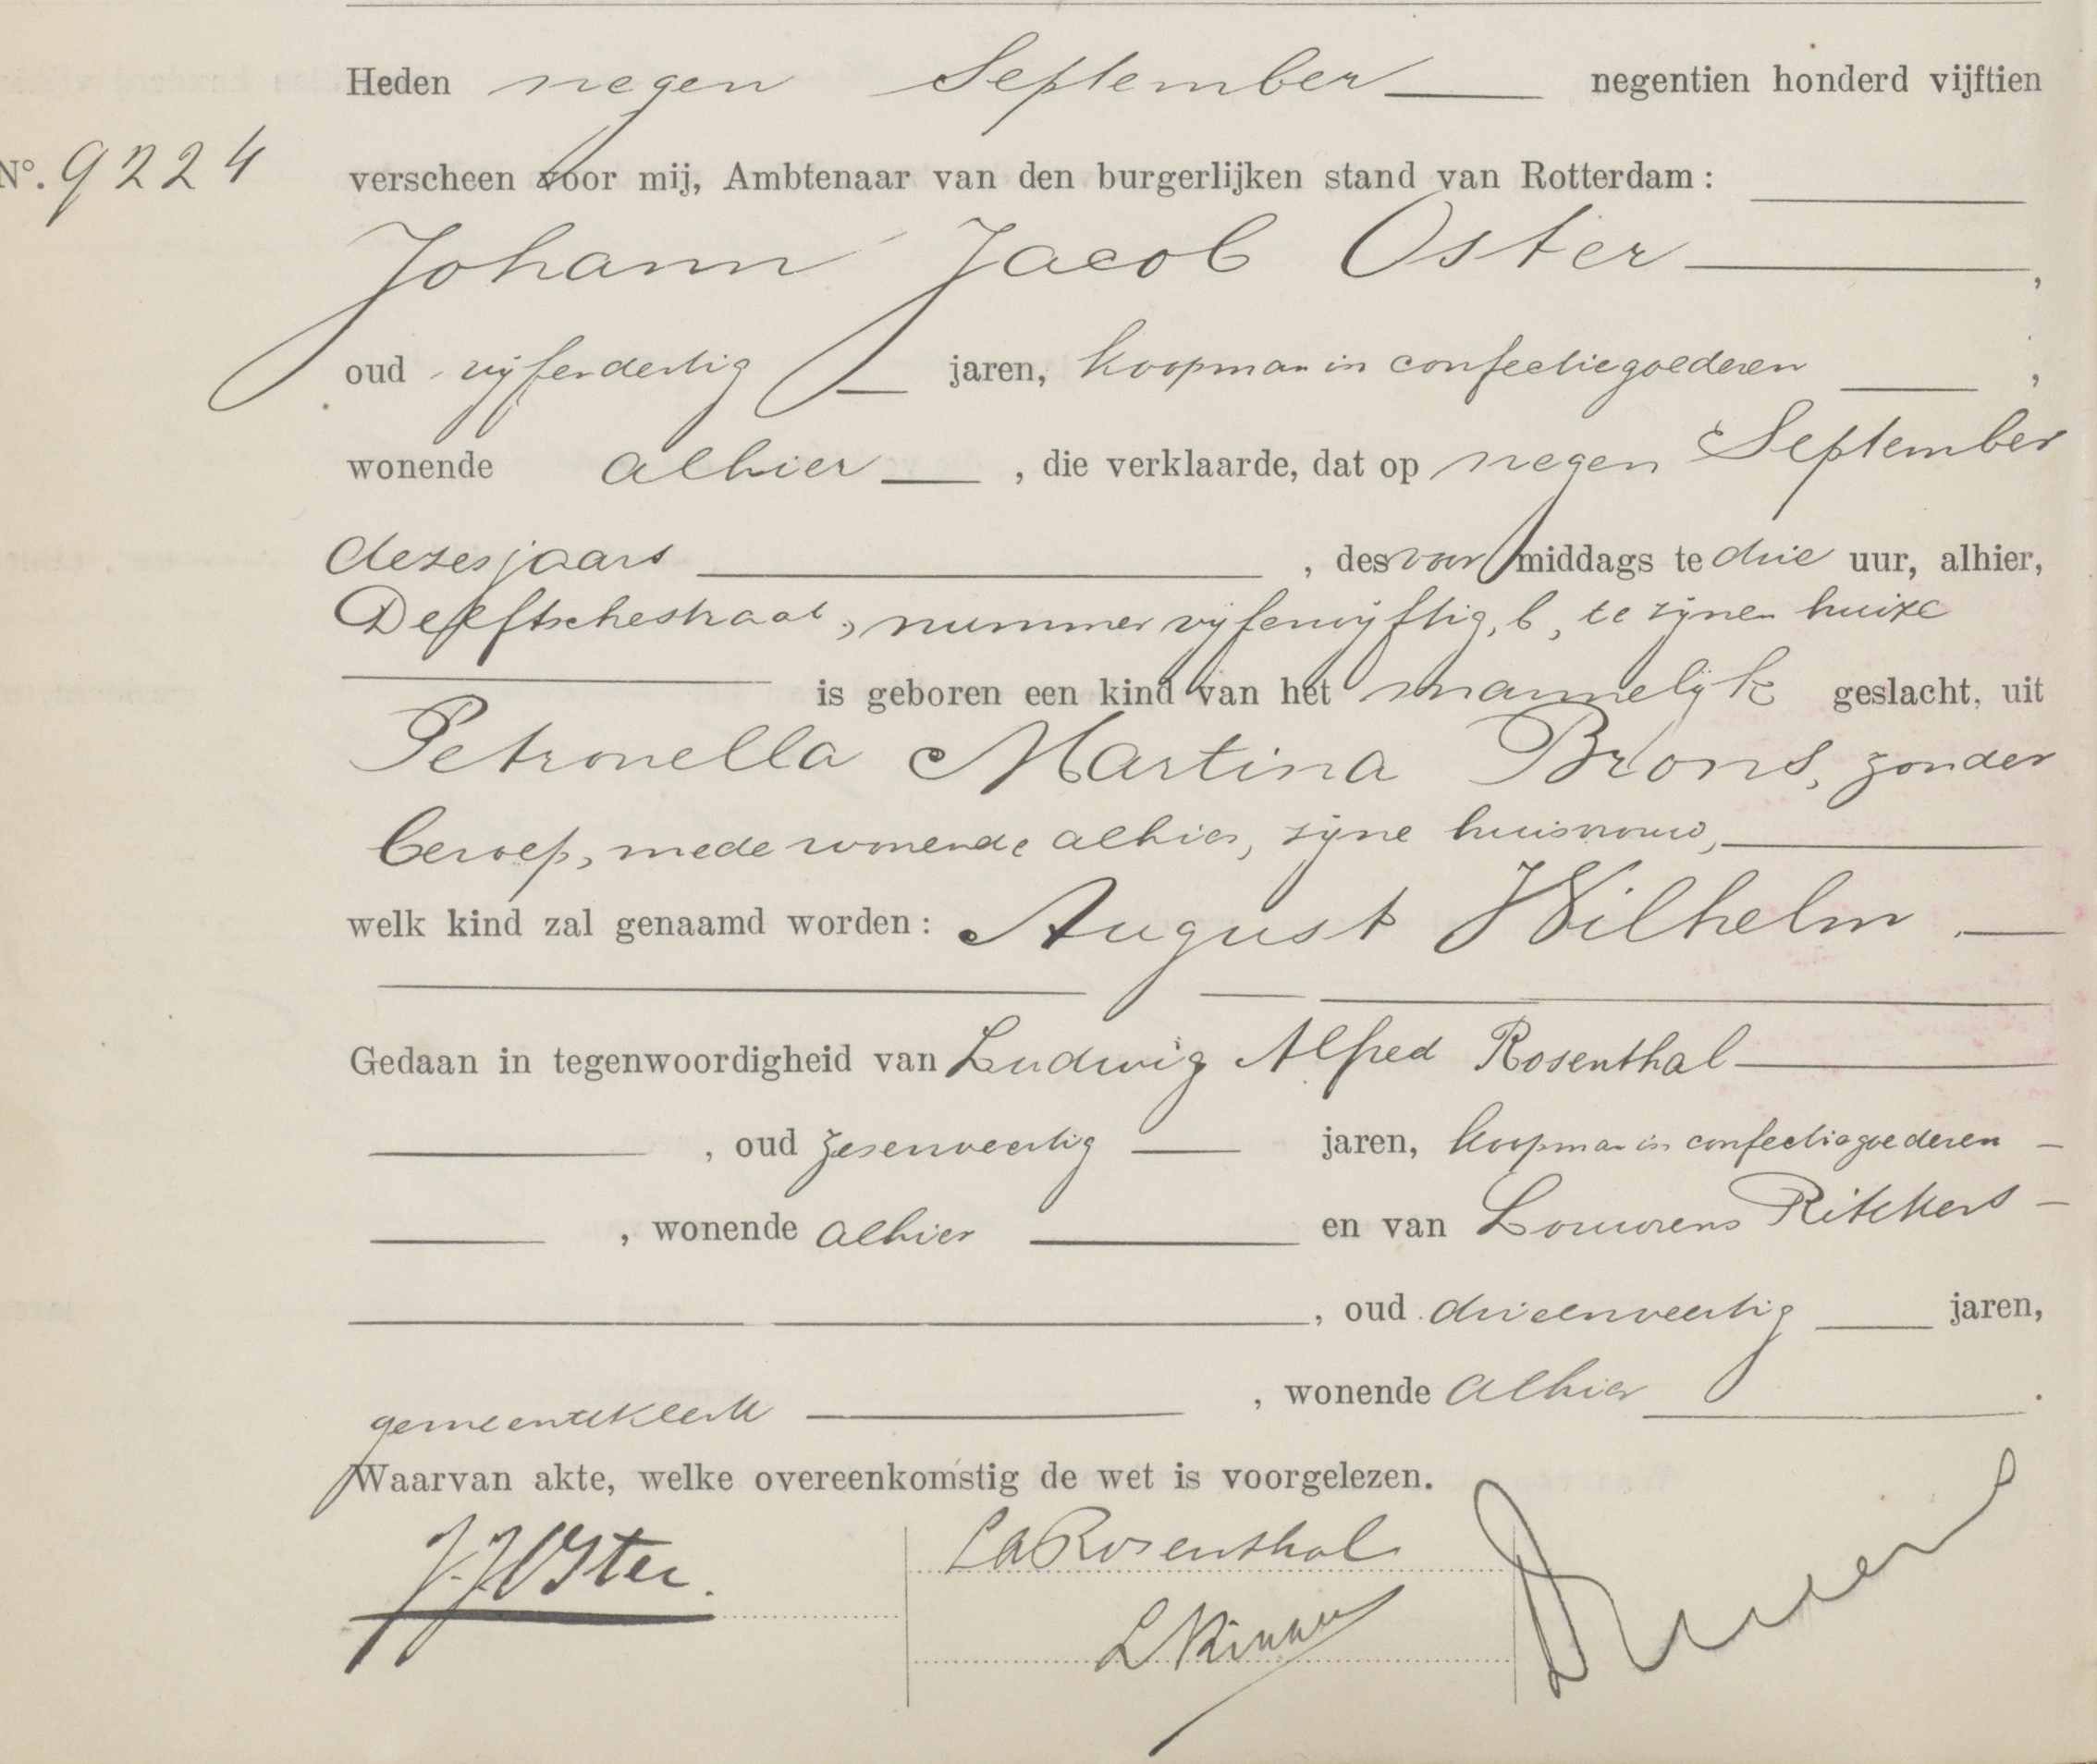 Heden negen September negentien honderd vijftien
N°. 9224 verscheen voor mij, Ambtenaar van den burgerlijken stand van Rotterdam:
Johann Jacob Oster,
oud vijfendertig jaren, koopman in confectiegoederen,
wonende alhier, die verklaarde, dat op negen September
dezes jaars, des voor middags te drie uur, alhier,
Delftschestraat, nummer vijfenvijftig, b, te zijnen huize
is geboren een kind van het mannelijk geslacht, uit
Petronella Martina Brons, zonder
beroep, mede wonende alhier, zijne huisvrouw,
welk kind zal genaamd worden: August Wilhelm.
Gedaan in tegenwoordigheid van Ludwig Alfred Rosenthal
, oud zesenveertig jaren, koopman in confectiegoederen
, wonende alhier en van Louwrens
, oud drieenveertig jaren,
gemeenteklerk, wonende alhier.
Waarvan akte, welke overeenkomstig de wet is voorgelezen.
J.J. Oster. LARosenthal